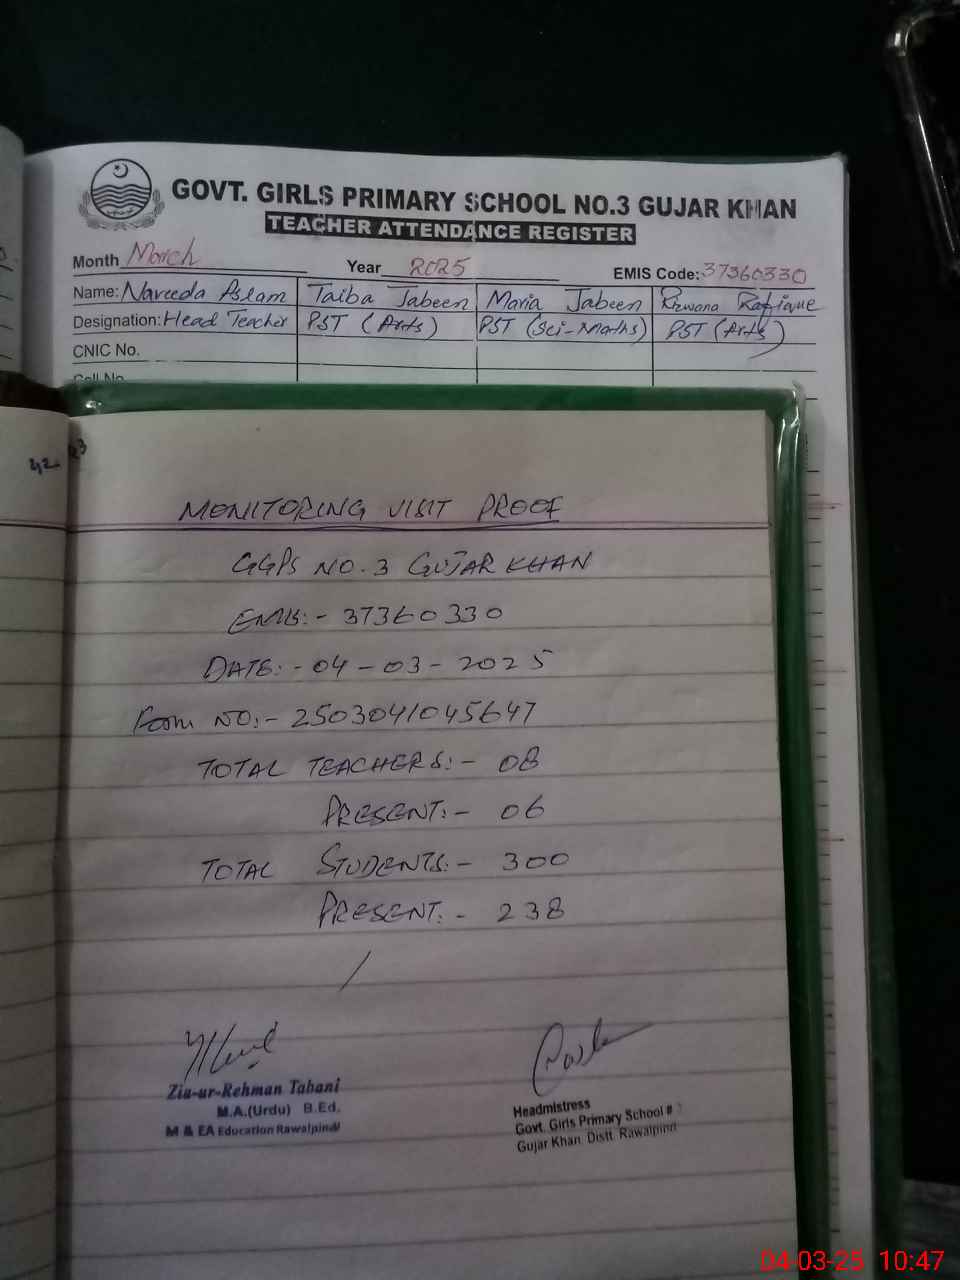 GOVT. GIRLS PRIMARY SCHOOL NO.3 GUJAR KHAN
TEACHER ATTENDANCE REGISTER
Month March Year 2025 EMIS Code: 37360330
Name: Naveeda Aslam Taiba Jabeen Maria Jabeen Rizwana Rafique
Designation: Head Teacher PST (Arts) PST (Sci-Maths) PST (Arts)
CNIC No.
Cell No.
MONITORING VISIT PROOF
GGPS NO. 3 GUJAR KHAN
EMIS:- 37360330
DATE:- 04-03-2025
Form NO:- 2503041045647
TOTAL TEACHERS:- 08
PRESENT:- 06
TOTAL STUDENTS:- 300
PRESENT:- 238
Zia-ur-Rehman Tahani
M.A.(Urdu) B.Ed.
M & EA Education Rawalpindi
Headmistress
Govt. Girls Primary School #
Gujar Khan Distt. Rawalpindi
04-03-25 10:47